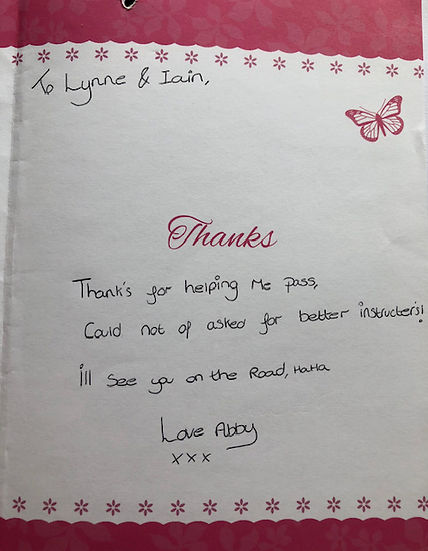 To Lynne & Iain,
Thanks
Thank's for helping Me pass,
Could not of asked for better instructer's!
i'll See you on the Road, HaHa
Love Abby
xxx